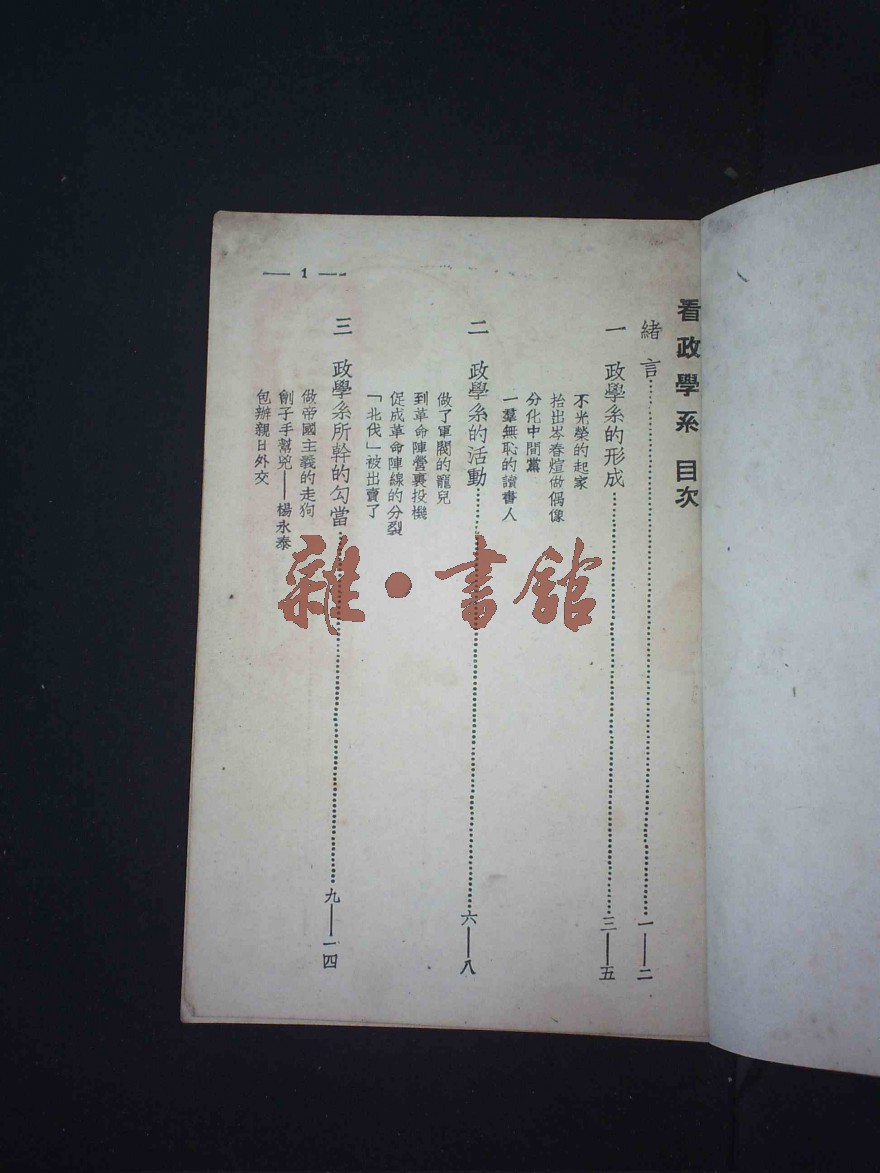 看政學系 目次
緒言……一——二
一 政學系的形成……三——五
不光榮的起家
抬出岑春煊做偶像
分化中間黨
一羣無恥的讀書人
二 政學系的活動……六——八
做了軍閥的寵兒
到革命陣營裏投機
促成革命陣線的分裂
「北伐」被出賣了
三 政學系所幹的勾當……九——一四
做帝國主義的走狗
劊子手幫兇——楊永泰
包辦親日外交
— 1 —
雜·書館